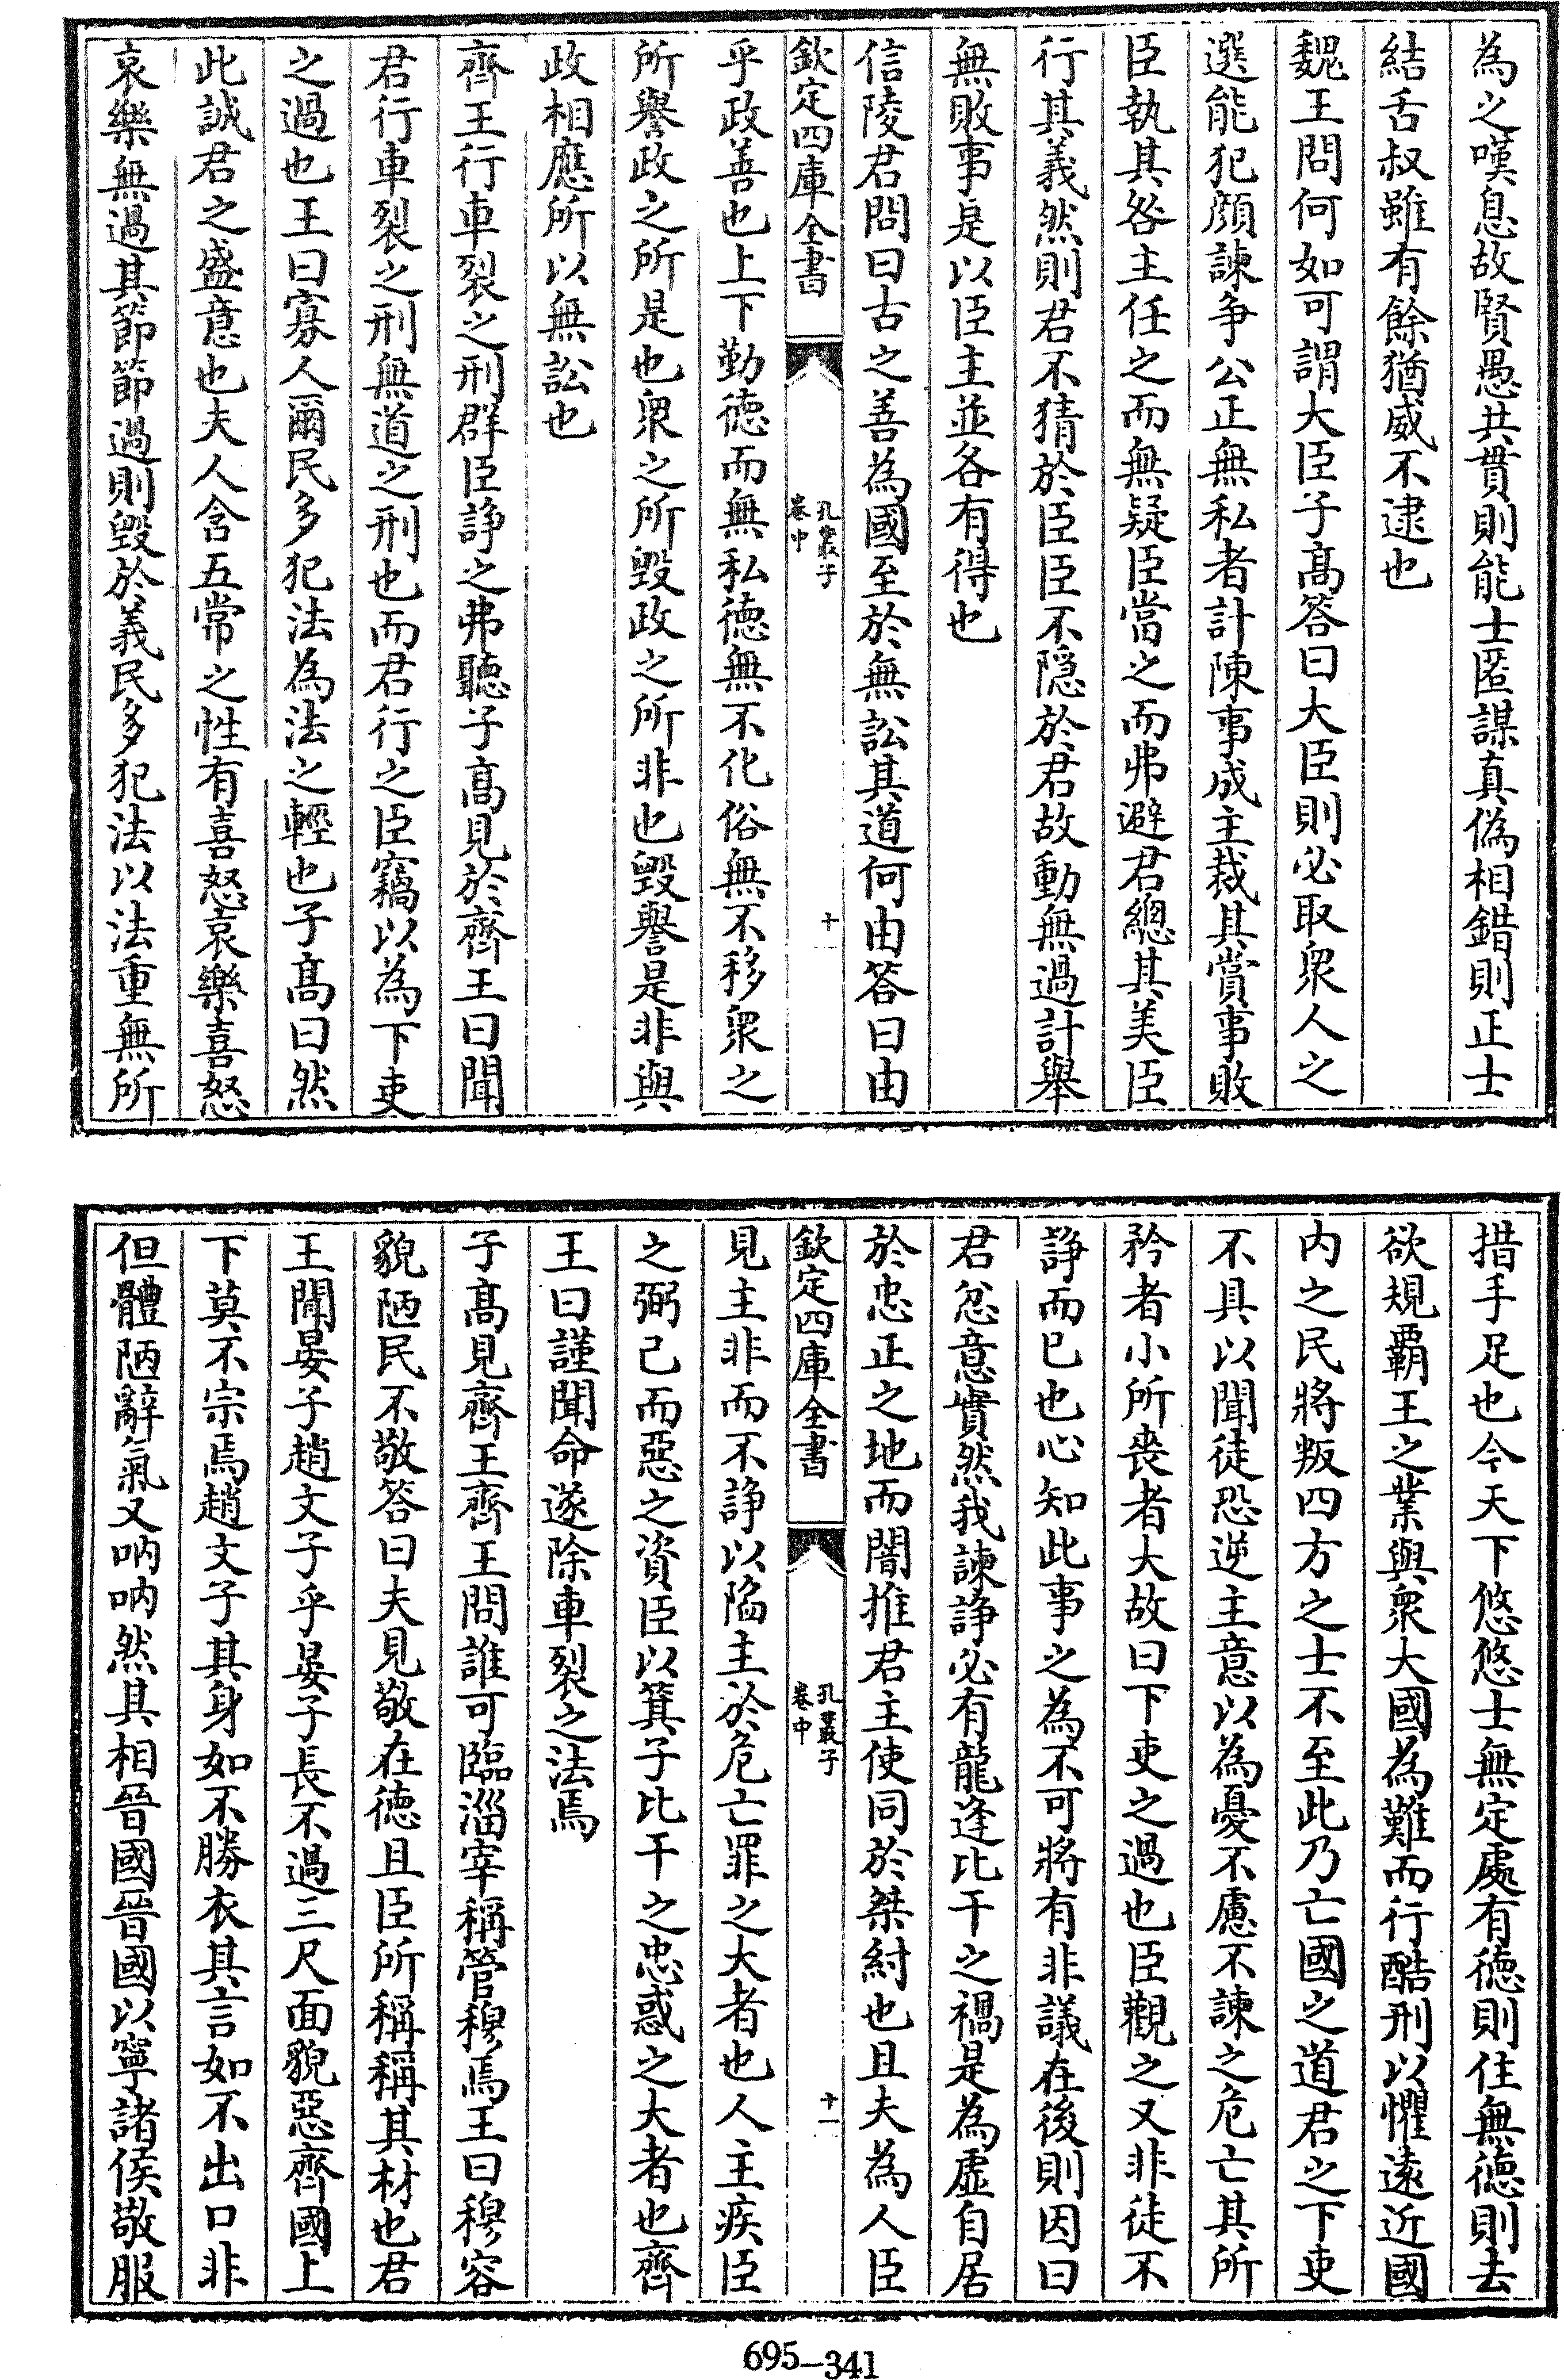 為之嘆息故賢愚共貫則能士匿謀真偽相錯則正士
結舌叔雖有餘猶威不逮也
魏王問何如可謂大臣子髙答曰大臣則必取衆人之
選能犯顔諫争公正無私者計陳事成主裁其賞事敗
臣執其咎主任之而無疑臣當之而弗避君總其美臣
行其義然則君不猜於臣臣不隠於君故動無過計舉
無敗事是以臣主並各有得也
信陵君問曰古之善為國至於無訟其道何由答曰由
欽定四庫全書
孔叢子
卷中
十
乎政善也上下勤徳而無私徳無不化俗無不移衆之
所譽政之所是也衆之所毀政之所非也毀譽是非與
政相應所以無訟也
齊王行車裂之刑群臣諍之弗聽子髙見於齊王曰聞
君行車裂之刑無道之刑也而君行之臣竊以為下吏
之過也王曰寡人爾民多犯法為法之輕也子髙曰然
此誠君之盛意也夫人含五常之性有喜怒哀樂喜怒
哀樂無過其節節過則毀於義民多犯法以法重無所
措手足也今天下悠悠士無定處有徳則住無徳則去
欲規覇王之業與衆大國為難而行酷刑以懼逺近國
内之民將叛四方之士不至此乃亡國之道君之下吏
不具以聞徒恐逆主意以為憂不慮不諫之危亡其所
矜者小所喪者大故曰下吏之過也臣觀之又非徒不
諍而已也心知此事之為不可將有非議在後則因曰
君忿意實然我諫諍必有龍逢比干之禍是為虚自居
於忠正之地而闇推君主使同於桀紂也且夫為人臣
欽定四庫全書
孔叢子
卷中
十一
見主非而不諍以陷主於危亡罪之大者也人主疾臣
之弼己而惡之資臣以箕子比干之忠惑之大者也齊
王曰謹聞命遂除車裂之法焉
子髙見齊王齊王問誰可臨淄宰稱管穆焉王曰穆容
貌陋民不敬答曰夫見敬在徳且臣所稱稱其材也君
王聞晏子趙文子乎晏子長不過三尺面貌惡齊國上
下莫不宗焉趙文子其身如不勝衣其言如不出口非
但體陋辭氣又吶吶然其相晉國晉國以寧諸侯敬服
695–341